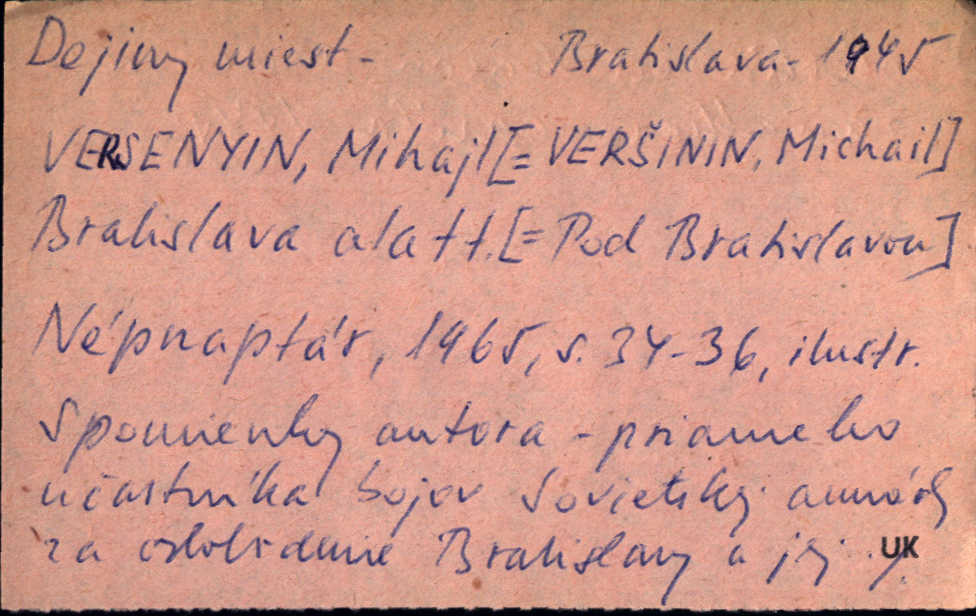 Dejiny miest - Bratislava - 1945
VERSENYIN, Mihajl [= VERŠININ, Michail]
Bratislava alatt. [= Pod Bratislavou]
Népnaptár, 1965, s. 34-36, ilustr.
Spomienky autora - priameho
účastníka bojov Sovietskej armády
za oslobodenie Bratislavy a jej UK